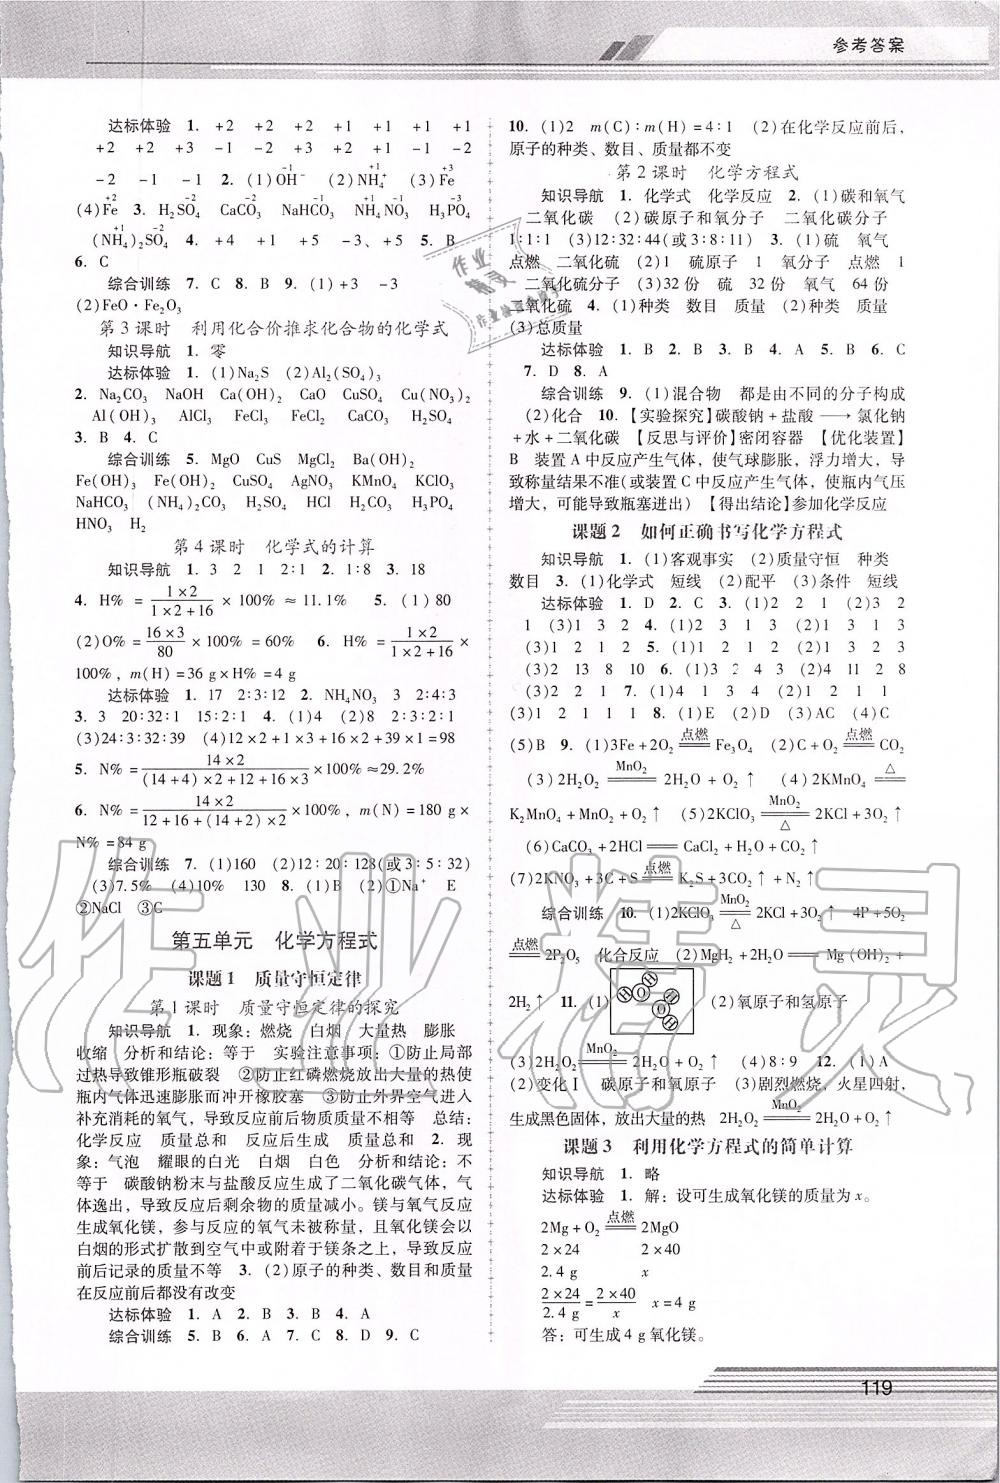 参考答案
达标体验 1. +2 +2 +2 +1 +1 +1 +1
+2 +2 +3 -1 -2 -2 -1 -1 -2
-2 -1 -1 2. (1)OH⁻ (2)NH₄⁺ (3)Fe
(4)Fe 3. H₂SO₄ CaCO₃ NaHCO₃ NH₄NO₃ H₃PO₄
(NH₄)₂SO₄ 4. +4 +1 +5 -3、+5 5. B
6. C
综合训练 7. C 8. B 9. (1)+3 -3
(2)FeO·Fe₂O₃
第3课时 利用化合价推求化合物的化学式
知识导航 1. 零
达标体验 1. (1)Na₂S (2)Al₂(SO₄)₃
2. Na₂CO₃ NaOH Ca(OH)₂ CaO CuSO₄ Cu(NO₃)₂
Al(OH)₃ AlCl₃ FeCl₃ FeCl₂ CaCO₃ H₂SO₄
3. B 4. C
综合训练 5. MgO CuS MgCl₂ Ba(OH)₂
Fe(OH)₃ Fe(OH)₂ CuSO₄ AgNO₃ KMnO₄ KClO₃
NaHCO₃ (NH₄)₂CO₃ H₂SO₄ HCl H₂CO₃ Ca(OH)₂
HNO₃ H₂
第4课时 化学式的计算
知识导航 1. 3 2 1 2:1 2. 1:8 3. 18
4. H% = (1×2)/(1×2+16) × 100% ≈ 11.1% 5. (1)80
(2)O% = (16×3)/80 × 100% = 60% 6. H% = (1×2)/(1×2+16) ×
100%, m(H) = 36 g×H% = 4 g
达标体验 1. 17 2:3:12 2. NH₄NO₃ 3 2:4:3
3. 3 20:32:1 15:2:1 4. (1)4 (2)8 2:3:2:1
(3)24:3:32:39 (4)12×2+1×3+16×2+39×1=98
5. N% = (14×2)/((14+4)×2+12+16×3) ×100% ≈29.2%
6. N% = (14×2)/(12+16+(14+2)×2) ×100%, m(N) = 180 g×
N% = 84 g
综合训练 7. (1)160 (2)12:20:128(或3:5:32)
(3)7.5% (4)10% 130 8. (1)D (2)①Na⁺ E
②NaCl ③C
第五单元 化学方程式
课题1 质量守恒定律
第1课时 质量守恒定律的探究
知识导航 1. 现象:燃烧 白烟 大量热 膨胀
收缩 分析和结论:等于 实验注意事项:①防止局部
过热导致锥形瓶破裂 ②防止红磷燃烧放出大量的热使
瓶内气体迅速膨胀而冲开橡胶塞 ③防止外界空气进入
补充消耗的氧气,导致反应前后物质质量不相等 总结:
化学反应 质量总和 反应后生成 质量总和 2. 现
象:气泡 耀眼的白光 白烟 白色 分析和结论:不
等于 碳酸钠粉末与盐酸反应生成了二氧化碳气体,气
体逸出,导致反应后剩余物的质量减小。镁与氧气反应
生成氧化镁,参与反应的氧气未被称量,且氧化镁会以
白烟的形式扩散到空气中或附着于镁条之上,导致反应
前后记录的质量不等 3. (2)原子的种类、数目和质量
在反应前后都没有改变
达标体验 1. A 2. B 3. B 4. A
综合训练 5. B 6. A 7. C 8. D 9. C
10. (1)2 m(C):m(H)=4:1 (2)在化学反应前后,
原子的种类、数目、质量都不变
第2课时 化学方程式
知识导航 1. 化学式 化学反应 2. (1)碳和氧气
二氧化碳 (2)碳原子和氧分子 二氧化碳分子
1:1:1 (3)12:32:44(或3:8:11) 3. (1)硫 氧气
点燃 二氧化硫 (2)1 硫原子 1 氧分子 点燃 1
二氧化硫分子 (3)32份 硫 32份 氧气 64份
二氧化硫 4. (1)种类 数目 质量 (2)种类 质量
(3)总质量
达标体验 1. B 2. B 3. B 4. A 5. B 6. C
7. D 8. A
综合训练 9. (1)混合物 都是由不同的分子构成
(2)化合 10. 【实验探究】碳酸钠+盐酸 → 氯化钠
+水+二氧化碳 【反思与评价】密闭容器 【优化装置】
B 装置A中反应产生气体,使气球膨胀,浮力增大,导
致称量结果不准(或装置C中反应产生气体,使瓶内气压
增大,可能导致瓶塞迸出) 【得出结论】参加化学反应
课题2 如何正确书写化学方程式
知识导航 1. (1)客观事实 (2)质量守恒 种类
数目 3. (1)化学式 短线 (2)配平 (3)条件 短线
达标体验 1. D 2. C 3. (1)2 2 1 (2)3 2
1 (3)1 3 2 4. (1)4 3 2 (2)1 3 1 3
(3)1 2 1 2 5. (1)1 2 1 2 (2)2 1 2 1
(3)2 13 8 10 6. (1)3 2 4 3 (2)4 11 2 8
(3)2 2 1 7. (1)4 1 2 2 (2)1 2 1 1
(3)1 2 1 1 1 8. (1)E (2)D (3)AC (4)C
(5)B 9. (1)3Fe+2O₂ =点燃= Fe₃O₄ (2)C+O₂ =点燃= CO₂
(3)2H₂O₂ =MnO₂= 2H₂O + O₂↑ (4)2KMnO₄ =△=
K₂MnO₄ + MnO₂ + O₂↑ (5)2KClO₃ =MnO₂/△= 2KCl + 3O₂↑
(6)CaCO₃ + 2HCl = CaCl₂ + H₂O + CO₂↑
(7)2KNO₃ +3C+S =点燃= K₂S+3CO₂↑+N₂↑
综合训练 10. (1)2KClO₃ =MnO₂/△= 2KCl+3O₂↑ 4P+5O₂
=点燃= 2P₂O₅ 化合反应 (2)MgH₂+2H₂O = Mg(OH)₂+
2H₂↑ 11. (1) H O H H O H (2)氧原子和氢原子
(3)2H₂O₂ =MnO₂= 2H₂O + O₂↑ (4)8:9 12. (1)A
(2)变化Ⅰ 碳原子和氧原子 (3)剧烈燃烧,火星四射,
生成黑色固体,放出大量的热 2H₂O₂ =MnO₂= 2H₂O + O₂↑
课题3 利用化学方程式的简单计算
知识导航 1. 略
达标体验 1. 解:设可生成氧化镁的质量为x。
2Mg + O₂ =点燃= 2MgO
2×24 2×40
2.4 g x
(2×24)/(2.4 g) = (2×40)/x x = 4 g
答:可生成4 g氧化镁。
119
作业精灵